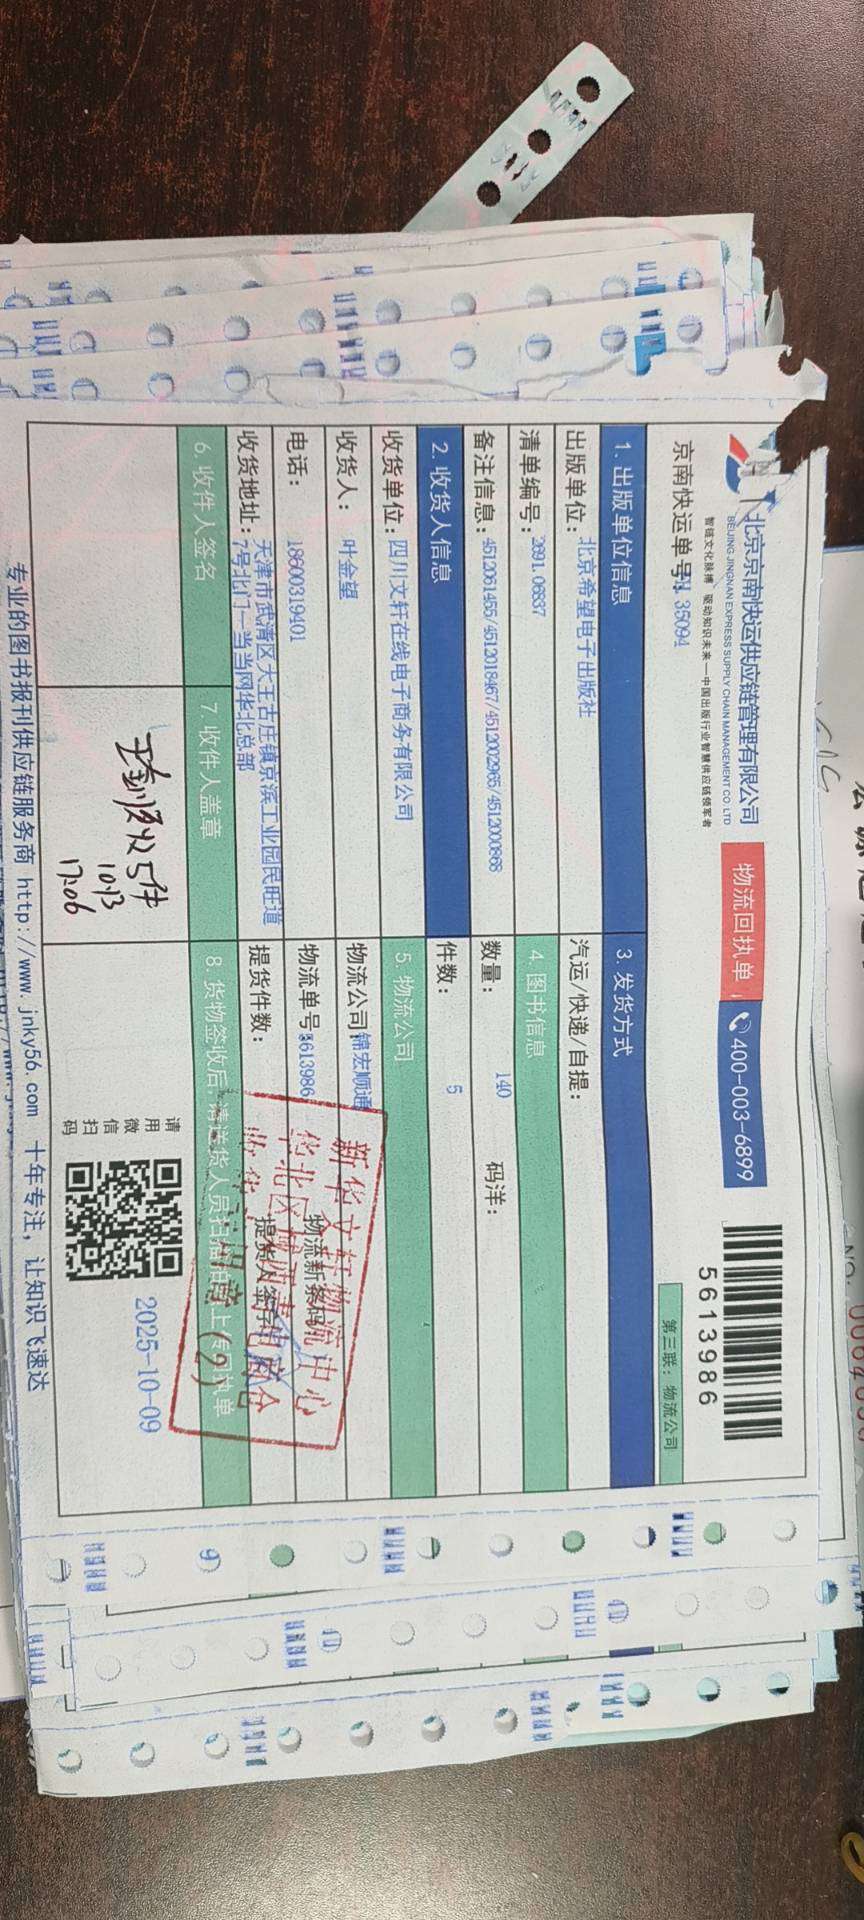 北京京南快运供应链管理有限公司
BEIJING JINGNAN EXPRESS SUPPLY CHAIN MANAGEMENT CO. LTD
智链文化脉搏 驱动知识未来—中国出版行业智慧供应链领军者
物流回执单
400-003-6899
5613986
京南快运单号: 35094
第三联：物流公司
1. 出版单位信息
3. 发货方式
出版单位：北京希望电子出版社
汽运/快递/自提：
清单编号：2691.06837
4. 图书信息
备注信息：4512061455/4512018467/4512002965/4512000868
数量：140
码洋：
2. 收货人信息
件数：5
收货单位：四川文轩在线电子商务有限公司
5. 物流公司
收货人：叶金望
物流公司：锦宏顺通
电话：18600319401
物流单号：5613986
物流新条码
收货地址：天津市武清区大王古庄镇京滨工业园民旺道
7号北门—当当网华北总部
提货件数：
提货人签字
6. 收件人签名
7. 收件人盖章
8. 货物签收后，请送货人员扫描 上传回执单
新华文轩物流中心
华北区 电商仓
收货专用章
(2)
实收5件
10.13
17:06
请用微信扫码
2025-10-09
专业的图书报刊供应链服务商 http://www.jnky56.com 十年专注，让知识飞速达